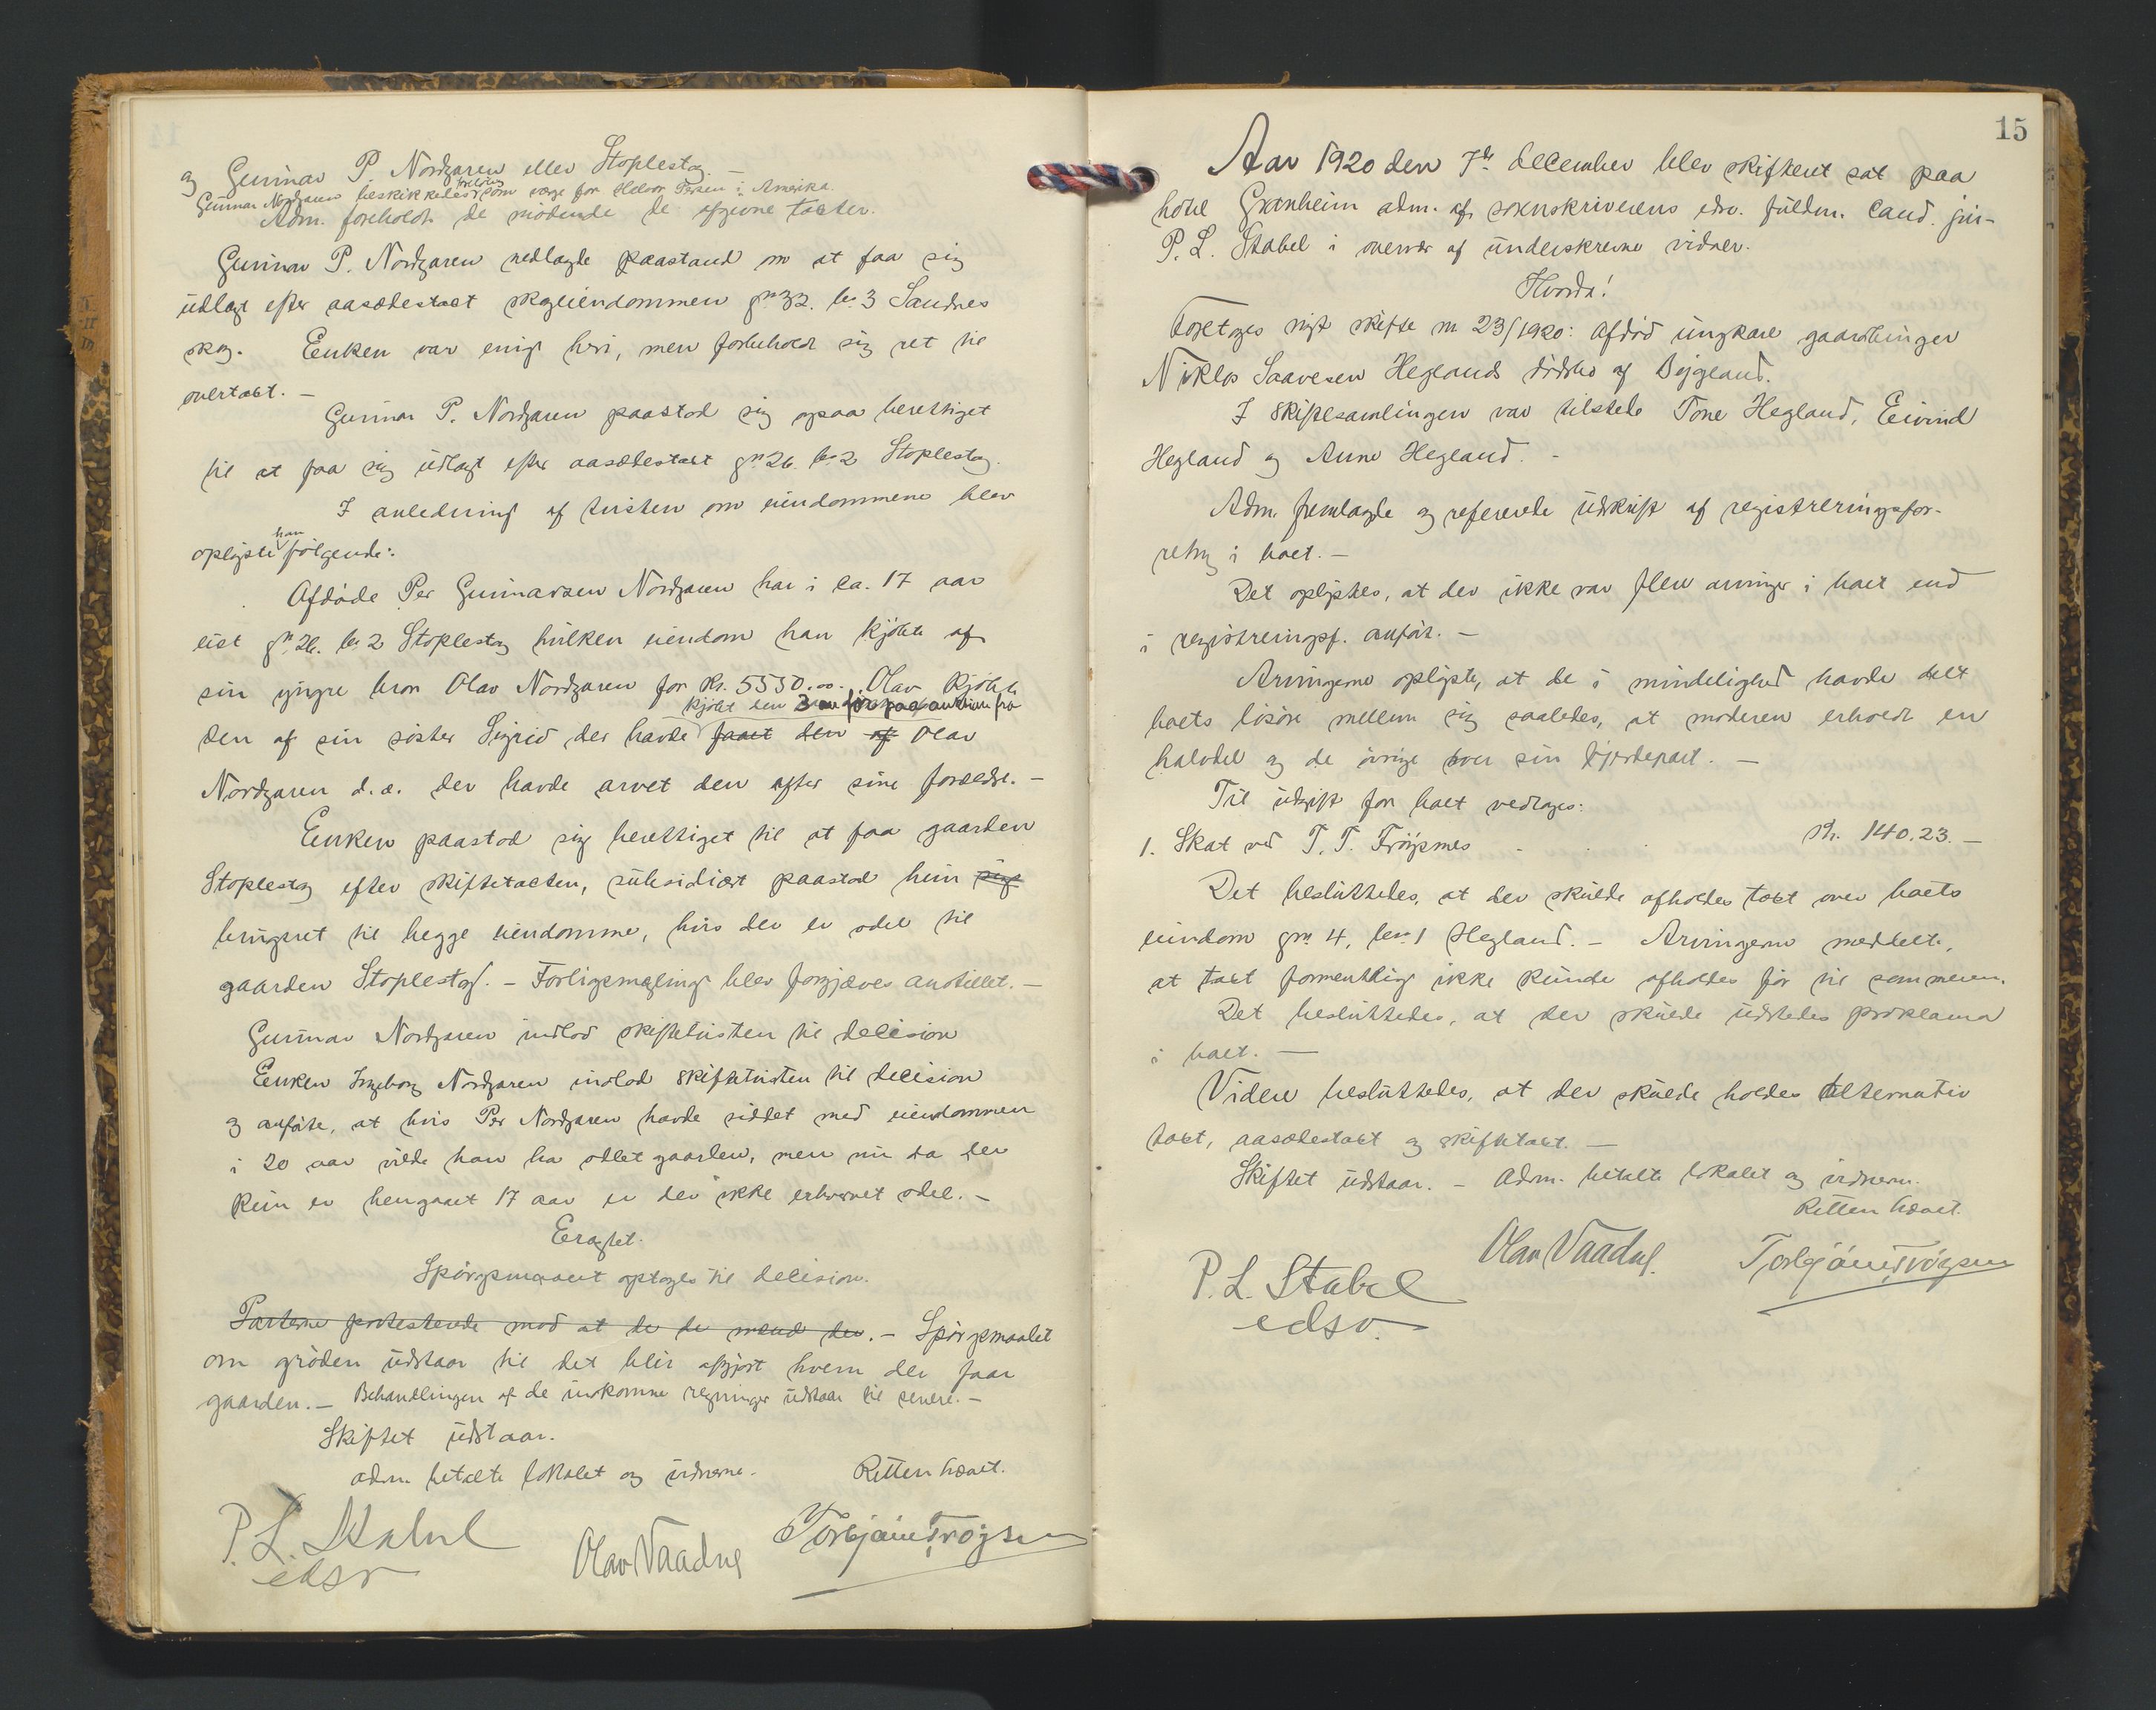 og Gunnar P. Nordgaren eller Stoplestog. —
Gunnar Nordgaren beskikkedes som værge for Halvor Persen i Amerika.
Adm. foreholdt de mødende de afgivne taxter.
Gunnar P. Nordgaren nedlagde paastand om at faa sig
udlagt efter aasædestaxt skogeiendommen gn. 32. bn. 3 Sandnes
skog. Enken var enig heri, men forbeholdt sig ret til
overtaxt. —
Gunnar P. Nordgaren paastod sig ogsaa berettiget
til at faa sig udlagt efter aasædestaxt gn. 26. bn. 2 Stoplestog.
I anledning af tvisten om eiendommene blev
han
oplyste følgende:
Afdøde Per Gunnarsen Nordgaren har i ca. 17 aar
eiet gn. 26. bn. 2 Stoplestog hvilken eiendom han kjøbte af
sin yngre bror Olav Nordgaren for kr. 5550.00. Olav kjøbte
kjøbt den 3 aar før paa auktion fra
den af sin søster Sigrid der havde faaet den af Olav
Nordgaren d.æ. der havde arvet den efter sine forældre. —
Enken paastod sig berettiget til at faa gaarden
Stoplestog efter skiftetaxten, subsidiært paastod hun sig
brugsret til begge eiendomme, hvis der er odel til
gaarden Stoplestog. — Forligsmægling blev forgjæves anstillet. —
Gunnar Nordgaren indlod skiftetvisten til decision
Enken Ingeborg Nordgaren indlod skiftetvisten til decision
og anførte, at hvis Per Nordgaren havde siddet med eiendommen
i 20 aar vilde han ha odlet gaarden, men nu da der
kun er hengaaet 17 aar er der ikke erhvervet odel. —
Eragtet.
Spørgsmaalet optages til decision.
Parterne protesterede mod at de de mænd der. — Spørgsmaalet
om grøden udstaar til det blir afgjort hvem der faar
gaarden. — Behandlingen af de indkomne regninger udstaar til senere. —
Skiftet udstaar.
Adm. betalte lokalet og vidnerne. Retten hævet.
P. L. Stabel
edsv.
Olav Vaadnes
Torbjørn Trøgsen
15
Aar 1920 den 7de december blev skifteret sat paa
hotel Granheim adm. af sorenskriverens edsv. fuldm. cand. jur.
P. L. Stabel i overvær af underskrevne vidner.
Hvorda!
Foretoges nyt skifte nr 23/1920: Afdød ungkarl gaardbruger
Niklos Saavesen Heglands dødsbo af Bygland.
I skiftesamlingen var tilstede Tone Hegland, Eivind
Hegland og Anne Hegland. —
Adm. fremlagde og refererede udskrift af registreringsfor-
retng i boet. —
Det oplystes, at der ikke var flere arvinger i boet end
i registreringsf. anført. —
Arvingerne oplyste, at de i mindelighed havde delt
boets løsøre mellem sig saaledes, at moderen erholdt en
halvdel og de øvrige hver sin fjerdepart. —
Til udgift for boet vedtages:
1. Skat ved T. T. Frøysnes . . . kr. 140.23. —
Det besluttedes, at der skulde afholdes taxt over boets
eiendom gn. 4, bn. 1 Hegland. — Arvingerne meddelte,
at taxt formentlig ikke kunde afholdes før til sommeren.
Det besluttedes, at der skulde udstedes proklama
i boet. —
Videre besluttedes, at der skulde holdes alternativ
taxt, aasædestaxt og skiftetaxt. —
Skiftet udstaar. — Adm. betalte lokalet og vidnerne.
Retten hævet.
P. L. Stabel
edsv.
Olav Vaadnes
Torbjørn Trøgsen